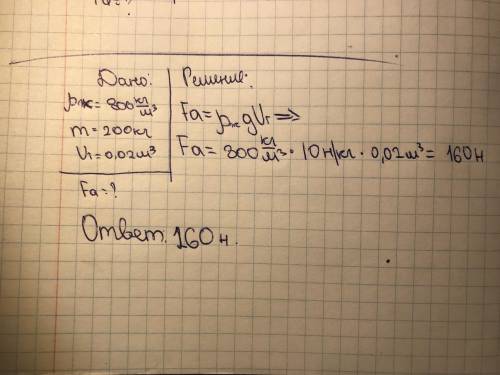 Дано:
ρж = 800 кг/м³
m = 200кг
Vт = 0,02м³
Fа = ?
Решение:
Fа = ρж gVт =>
Fа = 800 кг/м³ · 10 н/кг · 0,02м³ = 160н
Ответ: 160н.